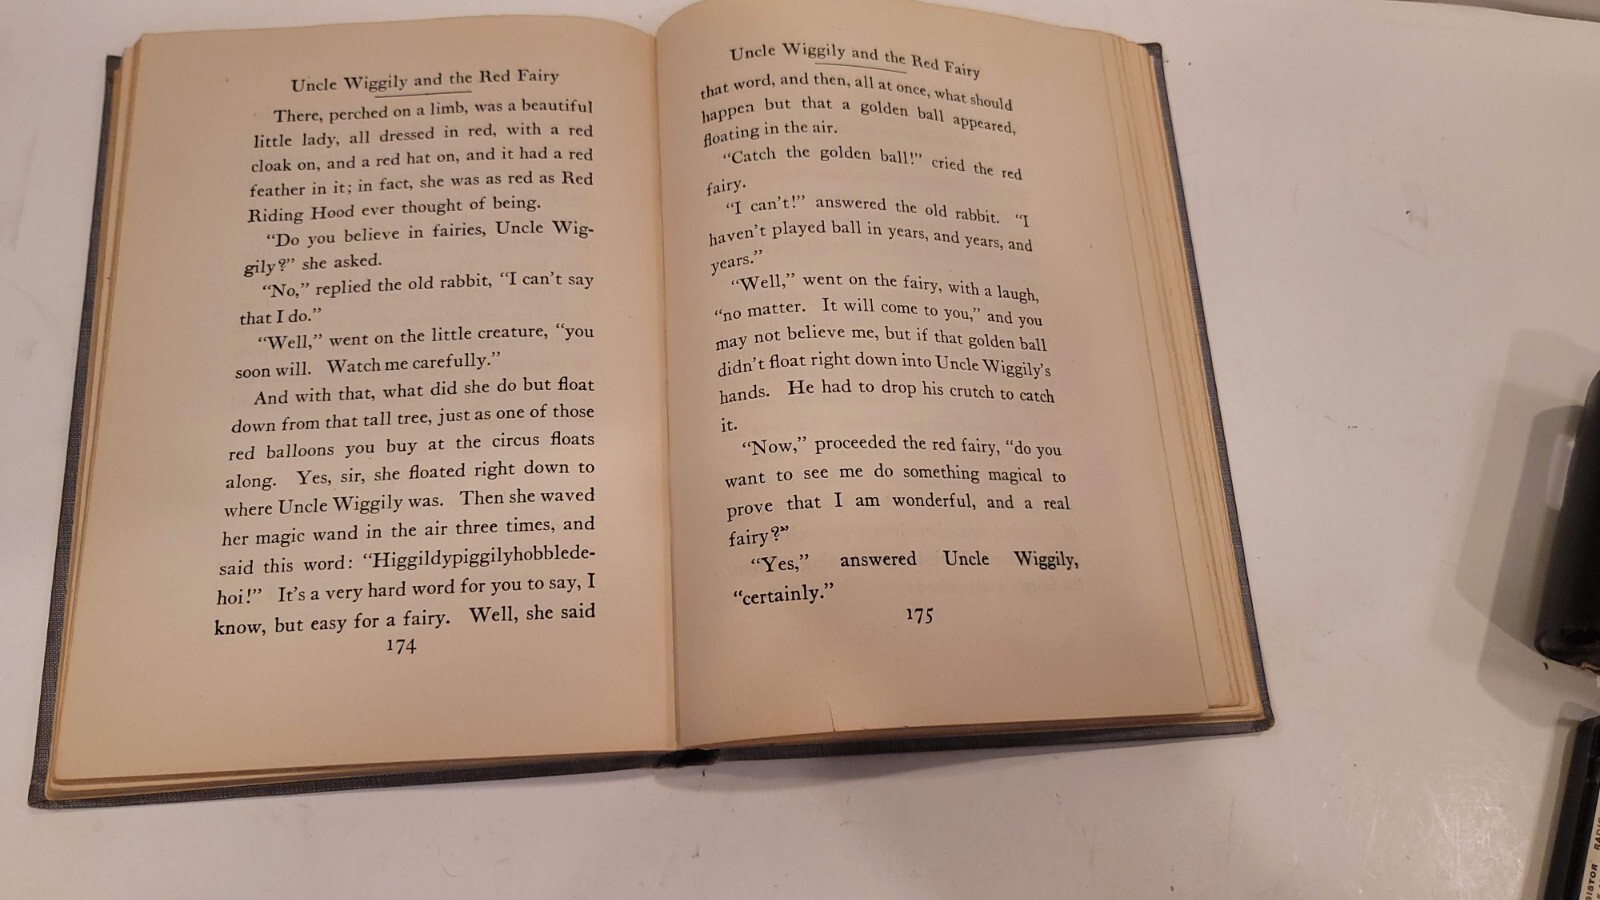 Uncle Wiggily and the Red Fairy
There, perched on a limb, was a beautiful
little lady, all dressed in red, with a red
cloak on, and a red hat on, and it had a red
feather in it; in fact, she was as red as Red
Riding Hood ever thought of being.
"Do you believe in fairies, Uncle Wig-
gily?" she asked.
"No," replied the old rabbit, "I can't say
that I do."
"Well," went on the little creature, "you
soon will. Watch me carefully."
And with that, what did she do but float
down from that tall tree, just as one of those
red balloons you buy at the circus floats
along. Yes, sir, she floated right down to
where Uncle Wiggily was. Then she waved
her magic wand in the air three times, and
said this word: "Higgildypiggilyhobblede-
hoi!" It's a very hard word for you to say, I
know, but easy for a fairy. Well, she said
174
Uncle Wiggily and the Red Fairy
that word, and then, all at once, what should
happen but that a golden ball appeared,
floating in the air.
"Catch the golden ball!" cried the red
fairy.
"I can't!" answered the old rabbit. "I
haven't played ball in years, and years, and
years."
"Well," went on the fairy, with a laugh,
"no matter. It will come to you," and you
may not believe me, but if that golden ball
didn't float right down into Uncle Wiggily's
hands. He had to drop his crutch to catch
it.
"Now," proceeded the red fairy, "do you
want to see me do something magical to
prove that I am wonderful, and a real
fairy?"
"Yes," answered Uncle Wiggily,
"certainly."
175